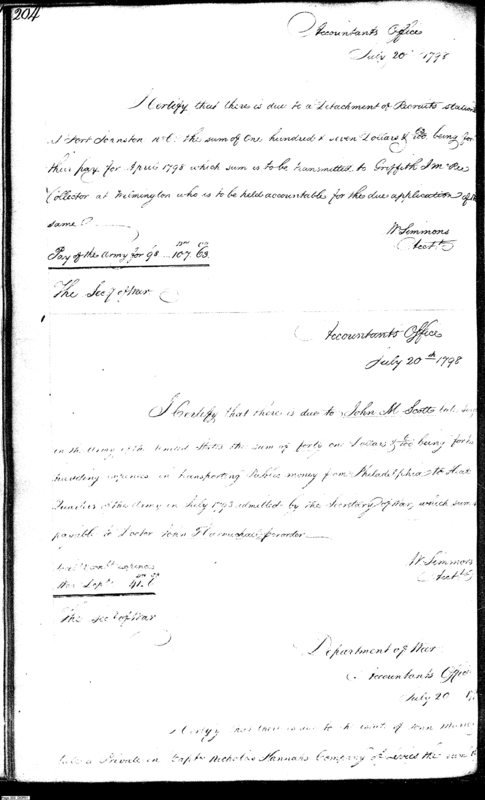 204
Accountants Office
July 20 1798
I Certify that there is due to a Detachment of Recruits station
at Fort Johnston NC: the sum of One hundred & seven Dollars & being for
their pay for April 1798 which sum is to be transmitted to Griffith J McRee
Collector at Wilmington who is to be held accountable for the due application of the
same.
W Simmons
Acctt
Pay of the Army for 98 ... 107. 63
The Secy of War
Accountants Office
July 20th 1798
I Certify that there is due to John M Scott late
in the Army of the United States the sum of forty one Dollars & being for his
travelling expences in transporting Public money from Philadelphia to Head
Quarters of the Army in July 1793 admitted by the Secretary of War, which sum
payable to Doctor John Carmichael or order
W Simmons
Acctt
expences
War Dept 41.
The Sec of War
Department of War
Accountants Office
July 20
I Certify that there is due to the of John
late a Private in Capts Nicholas Hannahs Company of Levies the sum